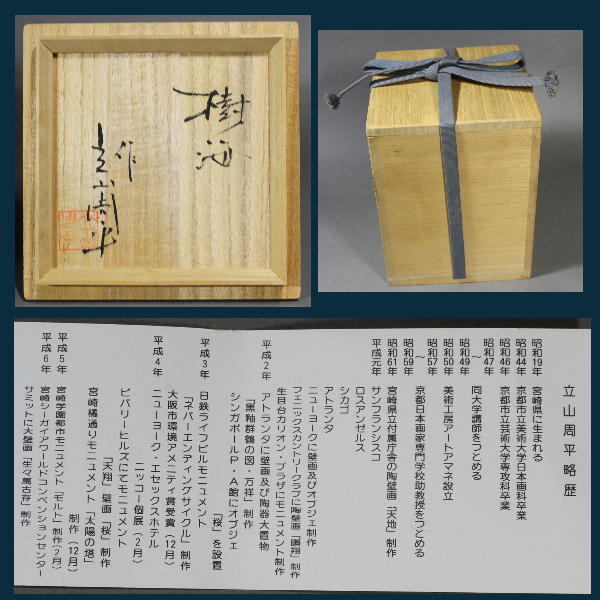 樹海
作
立山周平
立山周平略歴
昭和19年 宮崎県に生まれる
昭和44年 京都市立美術大学日本画科卒業
昭和46年 京都市立芸術大学専攻科卒業
昭和47年
〜
昭和49年 同大学講師をつとめる
昭和50年 美術工房アートアマネ設立
昭和57年
〜
昭和59年 京都日本画家専門学校助教授をつとめる
昭和61年 宮崎県立付属庁舎の陶壁画「天地」制作
平成元年 サンフランシスコ
ロスアンゼルス
シカゴ
アトランタ
ニューヨークに壁画及びオブジェ制作
フェニックスカントリークラブに陶壁画「鵬翔」制作
生目台カリオン・プラザにモニュメント制作
平成2年 アトランタに壁画及び陶器大置物
「黒釉群鶴の図・万祥」制作
シンガポールP・A館にオブジェ
「桜」を設置
平成3年 日鉄ライフビルモニュメント
「ネバーエンディングサイクル」制作
大阪市環境アメニティ賞受賞(12月)
平成4年 ニューヨーク・エセックスホテル
ニッコー個展(2月)
ビバリーヒルズにてモニュメント
「天翔」壁画「桜」制作
宮崎橘通りモニュメント「太陽の塔」
制作(12月)
平成5年 宮崎学園都市モニュメント「モルト」制作(2月)
平成6年 宮崎シーガイアワールドコンベンションセンター
サミットに大壁画「生々萬古存」制作